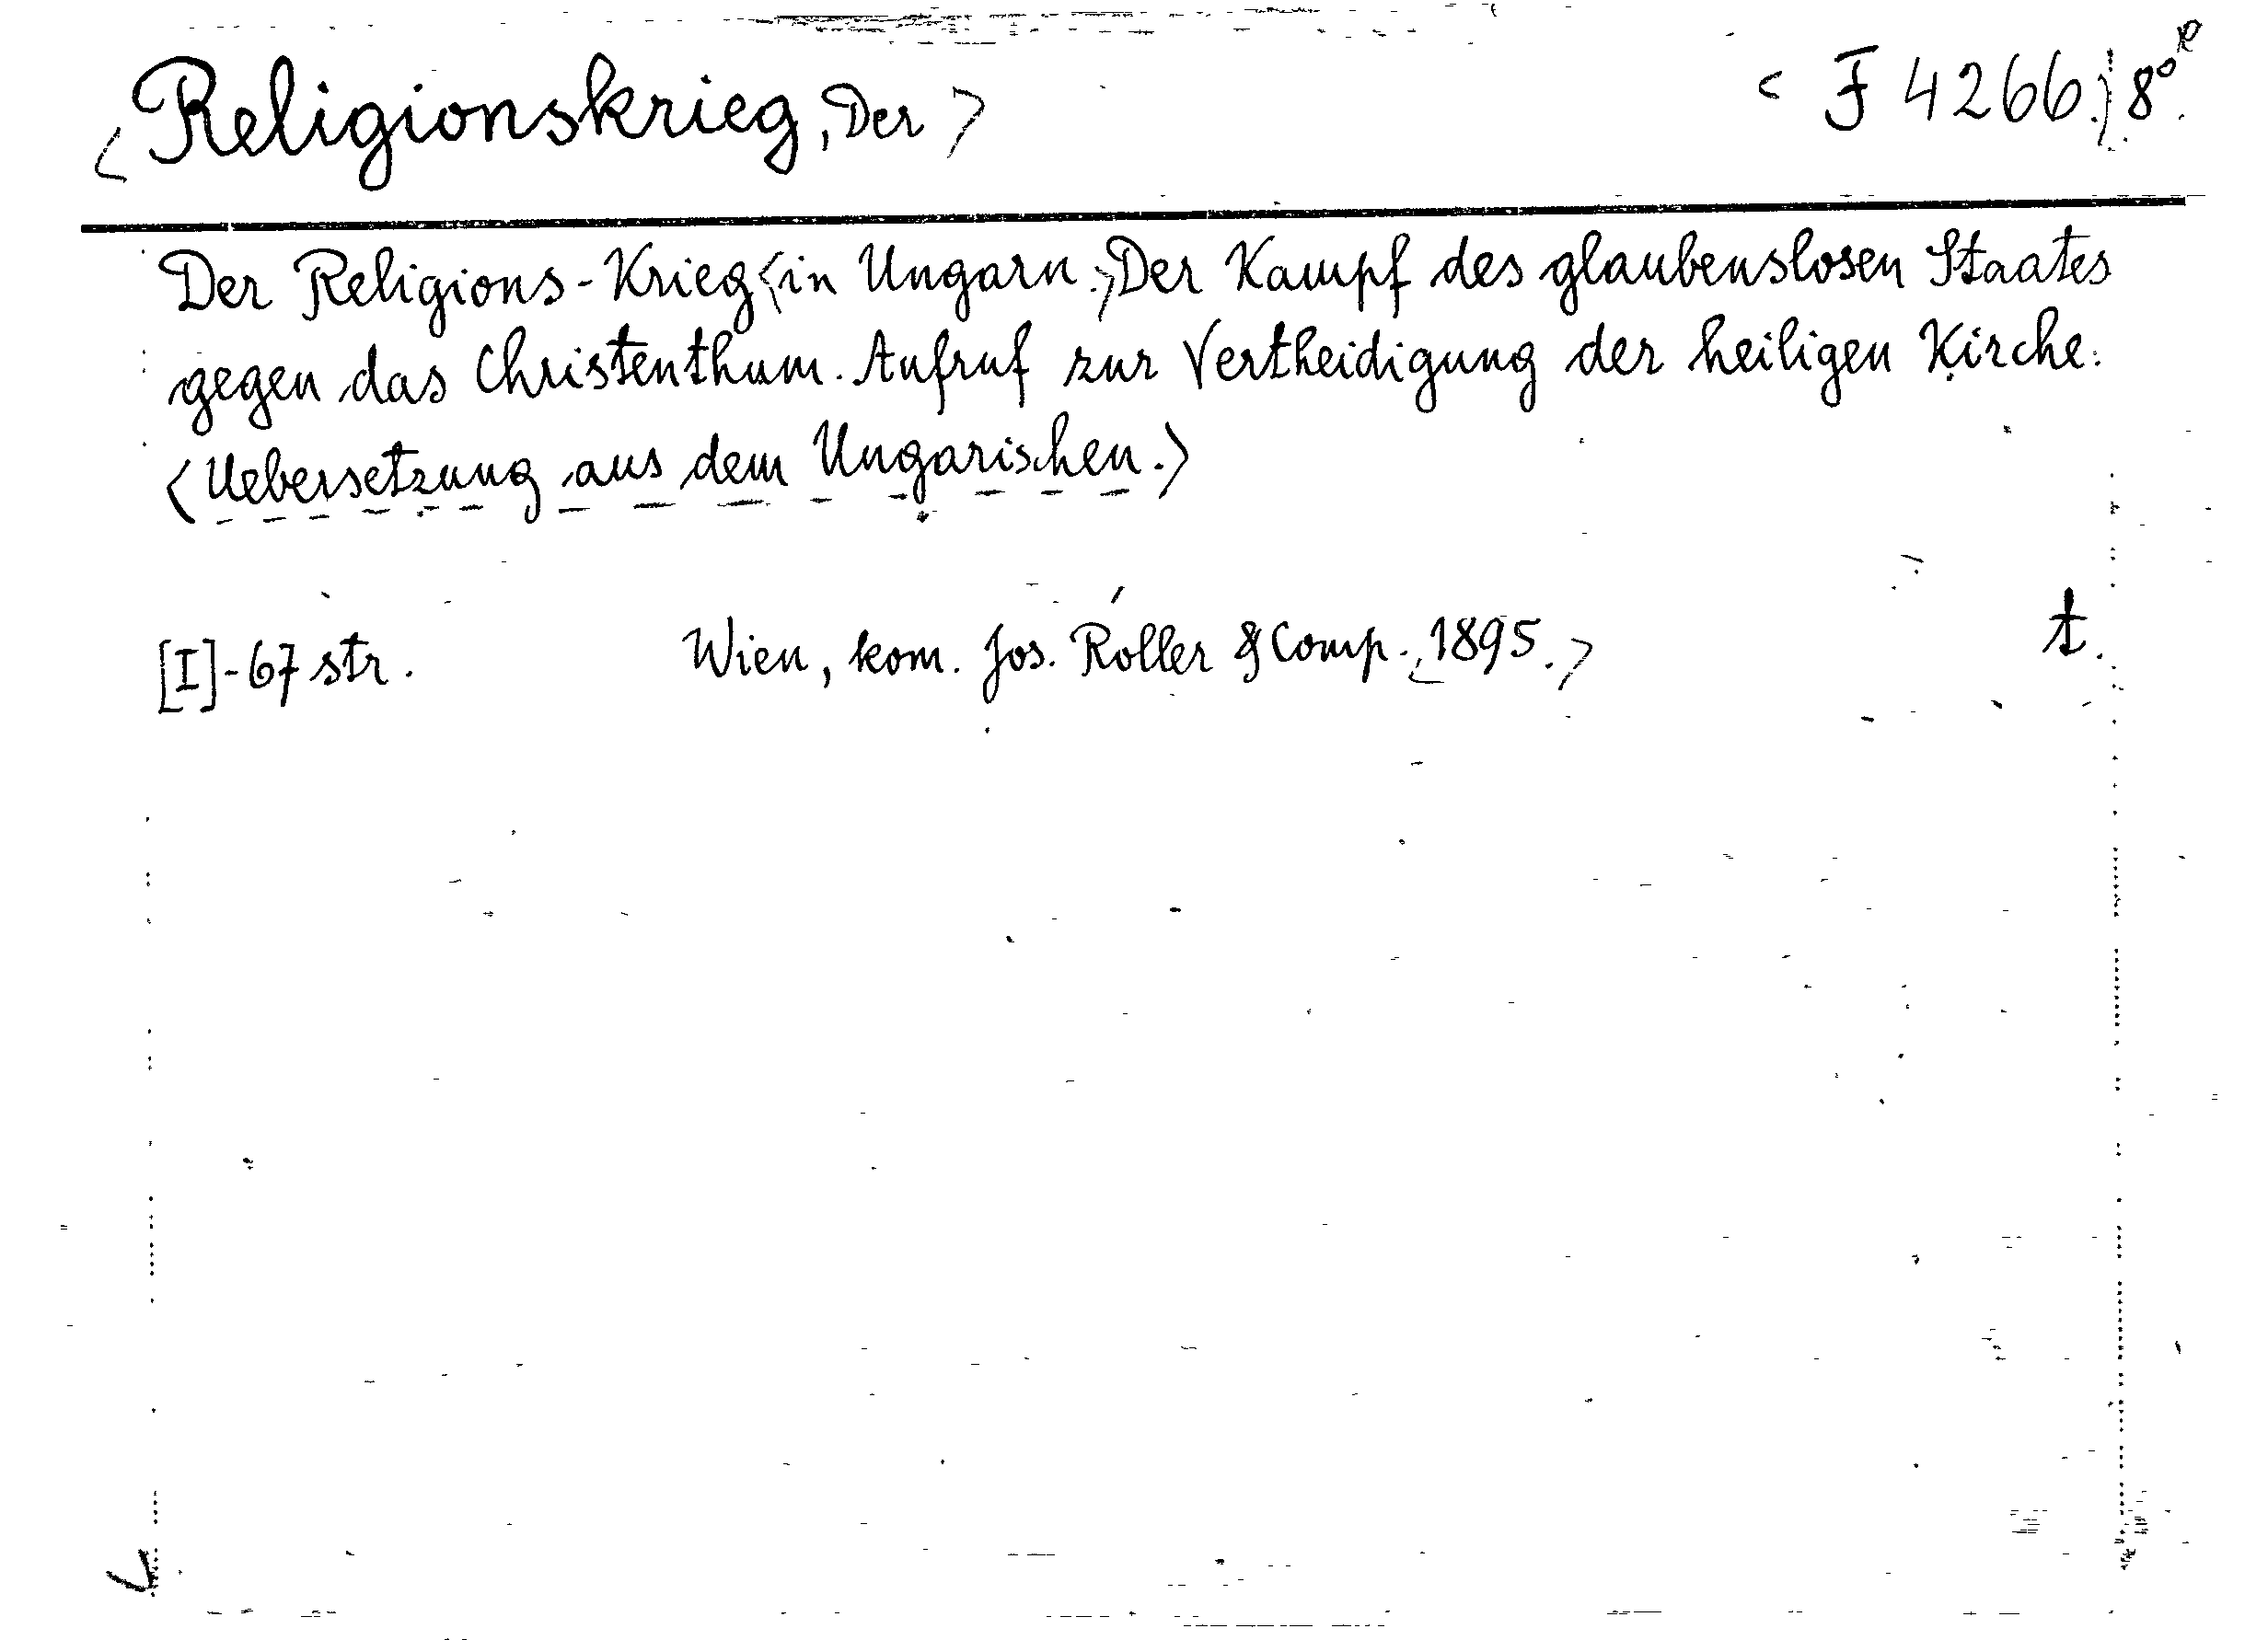 <Religionskrieg, Der> <F 4266.> 8° R
Der Religions-Krieg <in Ungarn.> Der Kampf des glaubenslosen Staates
gegen das Christenthum. Aufruf zur Vertheidigung der heiligen Kirche.
<Uebersetzung aus dem Ungarischen.>
[I]-67 str. Wien, kom. Jos. Roller & Comp. <1895.> t.